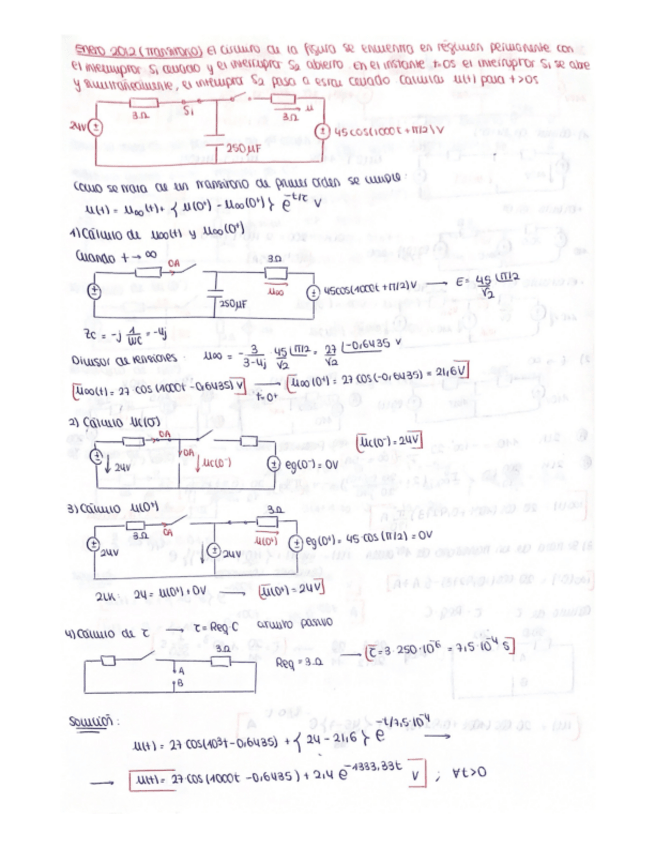 ENERO 2012 (TRANSITORIO) El circuito de la figura se encuentra en régimen permanente con
el interruptor S1 cerrado y el interruptor S2 abierto en el instante t=0s el interruptor S1 se abre
y simultáneamente, el interruptor S2 pasa a estar cerrado calcular u(t) para t>0s
24V 3Ω S1 S2 u 3Ω 45cos(1000t+π/2)V
250μF
Como se trata de un transitorio de primer orden se cumple:
u(t) = u∞(t) + { u(0⁺) - u∞(0⁺) } e^-t/τ V
1) Cálculo de u∞(t) y u∞(0⁺)
Cuando t → ∞
0A 3Ω u∞ 45cos(1000t+π/2)V → E = 45/√2 ∟π/2
250μF
Zc = -j 1/WC = -4j
Divisor de tensiones: u∞ = - 3/(3-4j) · 45/√2 ∟π/2 = 27/√2 ∟-0,6435 V
u∞(t) = 27 cos (1000t - 0,6435) V → t=0⁺ u∞(0⁺) = 27 cos(-0,6435) = 21,6V
2) Cálculo uc(0⁻)
0A 24V 0A uc(0⁻) eg(0⁻) = 0V uc(0⁻) = 24V
3) Cálculo u(0⁺)
24V 3Ω 0A 24V 3Ω u(0⁺) eg(0⁺) = 45 cos(π/2) = 0V
2LK 24 = u(0⁺) + 0V → u(0⁺) = 24V
4) Cálculo de τ → τ = Req·C circuito pasivo
3Ω A B Req = 3Ω → τ = 3·250·10⁻⁶ = 7,5·10⁻⁴ s
Solución:
u(t) = 27 cos(10³t - 0,6435) + { 24 - 21,6 } e^-t/7,5·10⁻⁴ →
→ u(t) = 27 cos (1000t - 0,6435) + 2,4 e^-1333,33t V ; ∀t>0